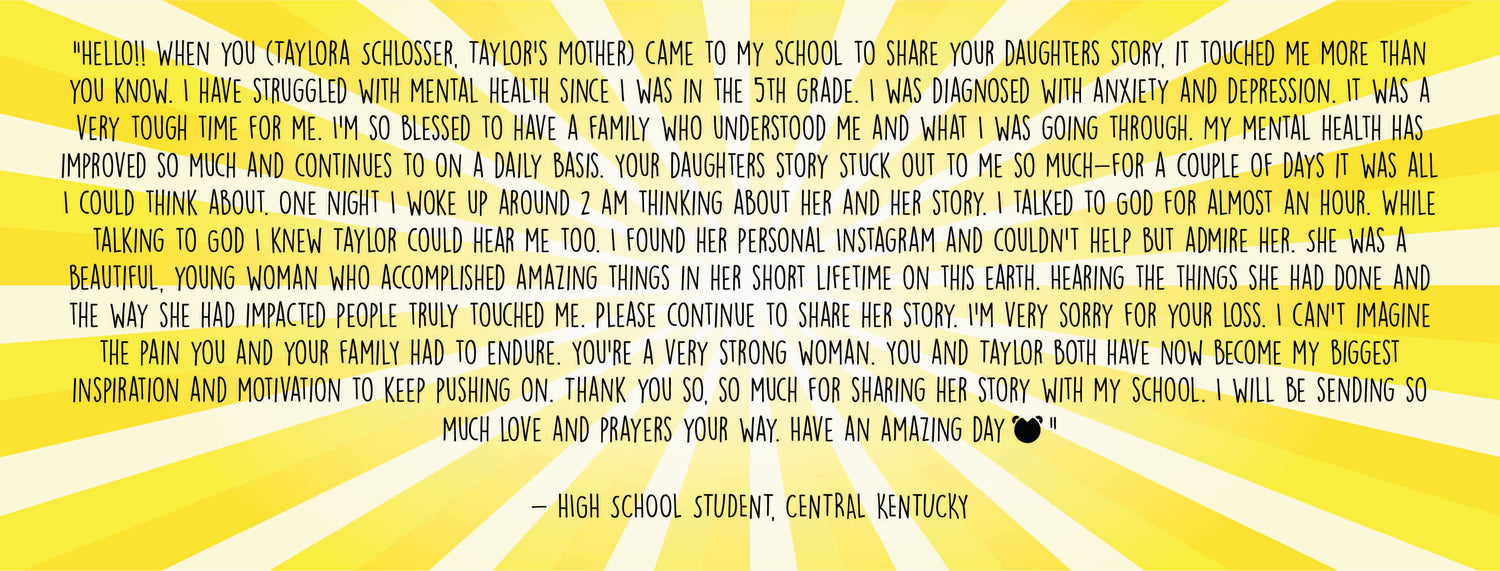 "HELLO!! WHEN YOU (TAYLORA SCHLOSSER, TAYLOR'S MOTHER) CAME TO MY SCHOOL TO SHARE YOUR DAUGHTERS STORY, IT TOUCHED ME MORE THAN
YOU KNOW. I HAVE STRUGGLED WITH MENTAL HEALTH SINCE I WAS IN THE 5TH GRADE. I WAS DIAGNOSED WITH ANXIETY AND DEPRESSION. IT WAS A
VERY TOUGH TIME FOR ME. I'M SO BLESSED TO HAVE A FAMILY WHO UNDERSTOOD ME AND WHAT I WAS GOING THROUGH. MY MENTAL HEALTH HAS
IMPROVED SO MUCH AND CONTINUES TO ON A DAILY BASIS. YOUR DAUGHTERS STORY STUCK OUT TO ME SO MUCH—FOR A COUPLE OF DAYS IT WAS ALL
I COULD THINK ABOUT. ONE NIGHT I WOKE UP AROUND 2 AM THINKING ABOUT HER AND HER STORY. I TALKED TO GOD FOR ALMOST AN HOUR. WHILE
TALKING TO GOD I KNEW TAYLOR COULD HEAR ME TOO. I FOUND HER PERSONAL INSTAGRAM AND COULDN'T HELP BUT ADMIRE HER. SHE WAS A
BEAUTIFUL, YOUNG WOMAN WHO ACCOMPLISHED AMAZING THINGS IN HER SHORT LIFETIME ON THIS EARTH. HEARING THE THINGS SHE HAD DONE AND
THE WAY SHE HAD IMPACTED PEOPLE TRULY TOUCHED ME. PLEASE CONTINUE TO SHARE HER STORY. I'M VERY SORRY FOR YOUR LOSS. I CAN'T IMAGINE
THE PAIN YOU AND YOUR FAMILY HAD TO ENDURE. YOU'RE A VERY STRONG WOMAN. YOU AND TAYLOR BOTH HAVE NOW BECOME MY BIGGEST
INSPIRATION AND MOTIVATION TO KEEP PUSHING ON. THANK YOU SO, SO MUCH FOR SHARING HER STORY WITH MY SCHOOL. I WILL BE SENDING SO
MUCH LOVE AND PRAYERS YOUR WAY. HAVE AN AMAZING DAY "
– HIGH SCHOOL STUDENT, CENTRAL KENTUCKY